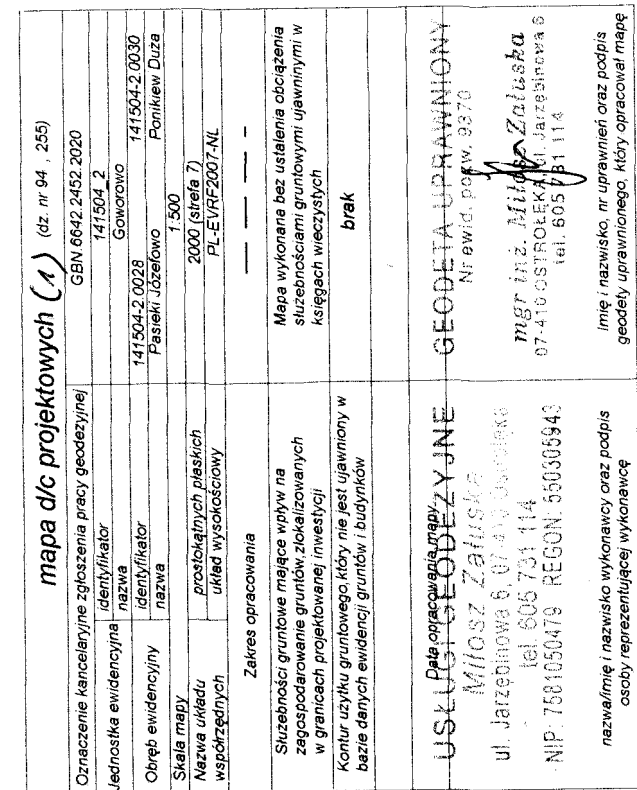 mapa d/c projektowych (1) (dz. nr 94 , 255)
Oznaczenie kancelaryjne zgłoszenia pracy geodezyjnej GBN.6642.2452.2020
Jednostka ewidencyjna identyfikator 141504_2
nazwa Goworowo
Obręb ewidencyjny identyfikator 141504-2.0028 141504-2.0030
nazwa Pasieki Józefowo Ponikiew Duża
Skala mapy 1:500
Nazwa układu współrzędnych prostokątnych płaskich 2000 (strefa 7)
układ wysokościowy PL-EVRF2007-NL
Zakres opracowania
Służebności gruntowe mające wpływ na
zagospodarowanie gruntów, zlokalizowanych
w granicach projektowanej inwestycji
Mapa wykonana bez ustalenia obciążenia
służebnościami gruntowymi ujawninymi w
księgach wieczystych
Kontur użytku gruntowego, który nie jest ujawniony w
bazie danych ewidencji gruntów i budynków
brak
Data opracowania mapy
USŁUGI GEODEZYJNE
Miłosz Załuska
ul. Jarzębinowa 6, 07-410 Ostrołęka
tel. 605 731 114
NIP: 7581050479 REGON: 550305943
nazwa/imię i nazwisko wykonawcy oraz podpis
osoby reprezentującej wykonawcę
GEODETA UPRAWNIONY
Nr ewid. pokw. 9370
mgr inż. Miłosz Załuska
07-410 OSTROŁĘKA, ul. Jarzębinowa 6
tel. 605 731 114
Imię i nazwisko, nr uprawnień oraz podpis
geodety uprawnionego, który opracował mapę